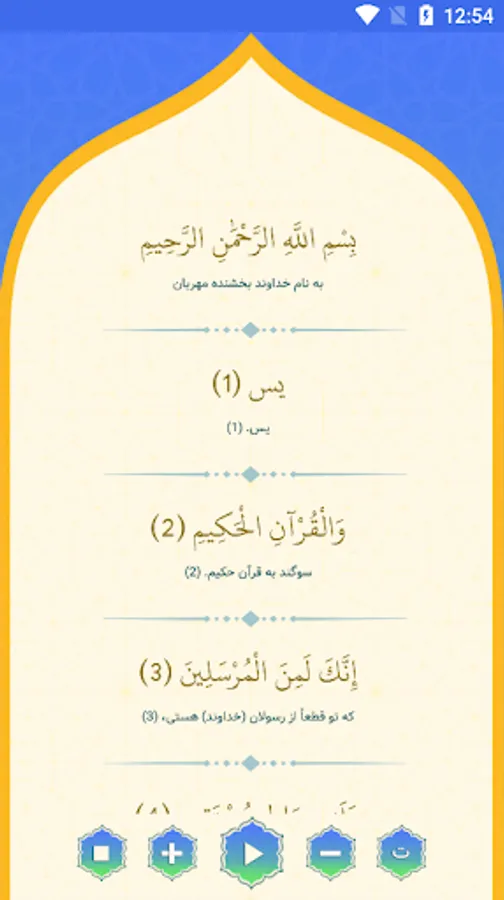 12:54
بِسْمِ اللَّهِ الرَّحْمَٰنِ الرَّحِيمِ
به نام خداوند بخشنده مهربان
يس (1)
یس. (1)
وَالْقُرْآنِ الْحَكِيمِ (2)
سوگند به قرآن حکیم. (2)
إِنَّكَ لَمِنَ الْمُرْسَلِينَ (3)
که تو قطعاً از رسولان (خداوند) هستی، (3)
ت